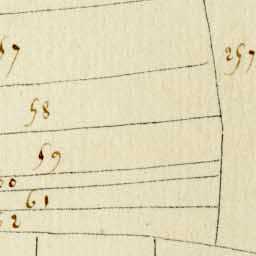 57
257
58
59
60
61
62